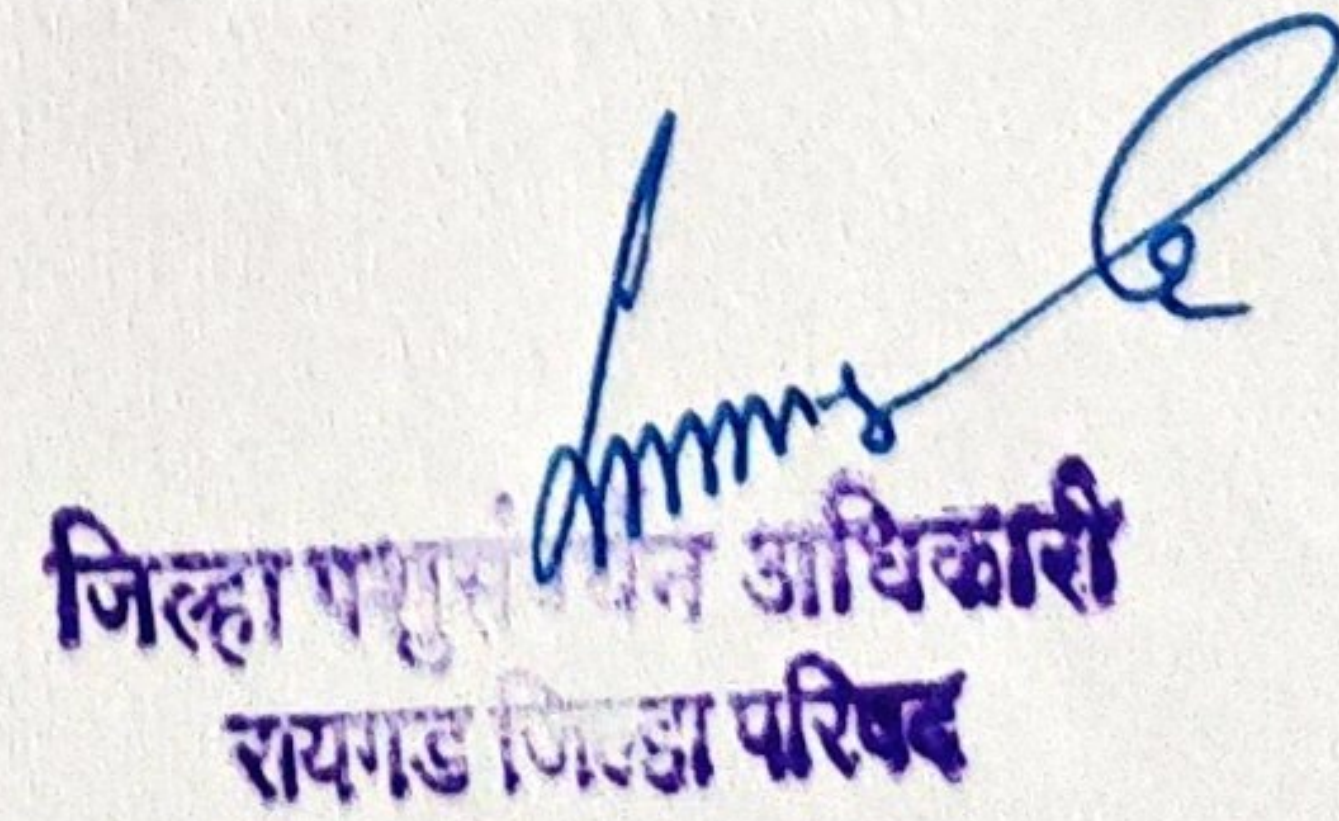 जिल्हा पशुसंवर्धन अधिकारी
रायगड जिल्हा परिषद